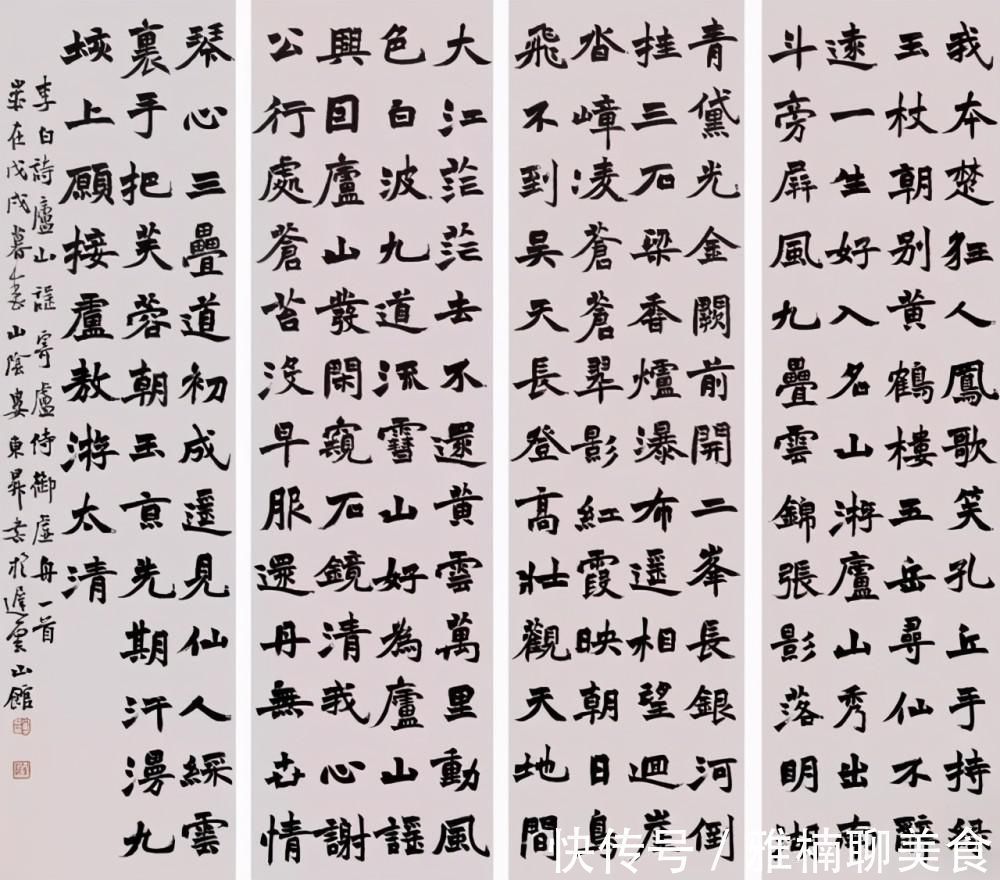 我本楚狂人鳳歌笑孔丘手持緑
玉杖朝别黄鶴樓五岳尋仙不辭
遠一生好入名山游廬山秀出南
斗旁屏風九疊雲錦張影落明湖
青黛光金闕前開二峯長銀河倒
挂三石梁香爐瀑布遥相望迴崖
沓嶂凌蒼蒼翠影紅霞映朝日鳥
飛不到吴天長登高壯觀天地間
大江茫茫去不還黄雲萬里動風
色白波九道流雪山好為廬山謡
興因廬山發閑窺石鏡清我心謝
公行處蒼苔没早服還丹無世情
琴心三疊道初成遥見仙人綵雲
裏手把芙蓉朝玉亰先期汗漫九
垓上願接盧敖游太清
李白詩廬山謡寄盧侍御虚舟一首
歲在戊戌暮春山陰婁東昇書於遲雲山館
快传号 / 雅楠聊美食